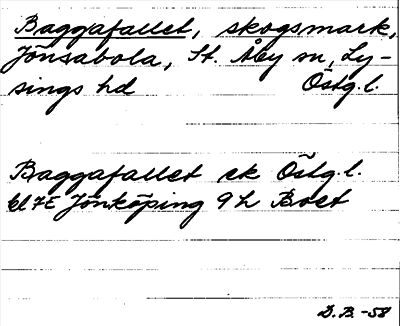 Baggafallet, skogsmark,
Jönsabola, St. Åby sn, Ly-
sings hd Östg.l.
Baggafallet ek Östg.l.
bl 7E Jönköping 9h Boet
D.B. -58